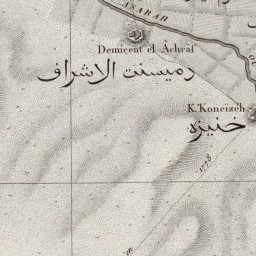 ASARAH
Demicent el Achraf
دميسنت الاشراف
K. Koneizéh
خنيزه
1778